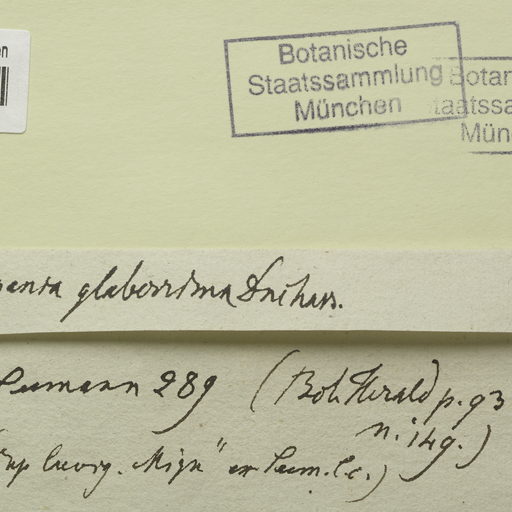 en
Botanische
Staatssammlung
München
Botan
taatssa
Mün
glaberrima
Seemann 289 (Bot. Herald p. 93
n. 149.)
ex Seem. l. c.)